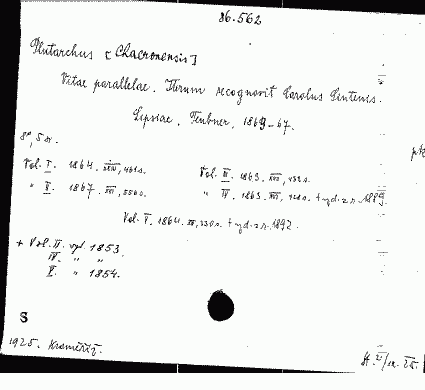 36.562
Plutarchus [Chaeronensis]
Vitae parallelae. Iterum recognovit Carolus Sintenis.
Lipsiae, Teubner, 1869-67.
8°, 5 sv.
Vol. I. 1864. XXIV, 461 s. Vol. III. 1863.
" II. 1867. XVI, 556 s. " IV. 1863. XVI, + vyd. z r. 1889.
Vol. V. 1864. XX, 330 s. + vyd. z r. 1892.
+ Vol. II. vyt. 1853.
IV. " "
V. " 1854.
S
1925. Kroměříž.